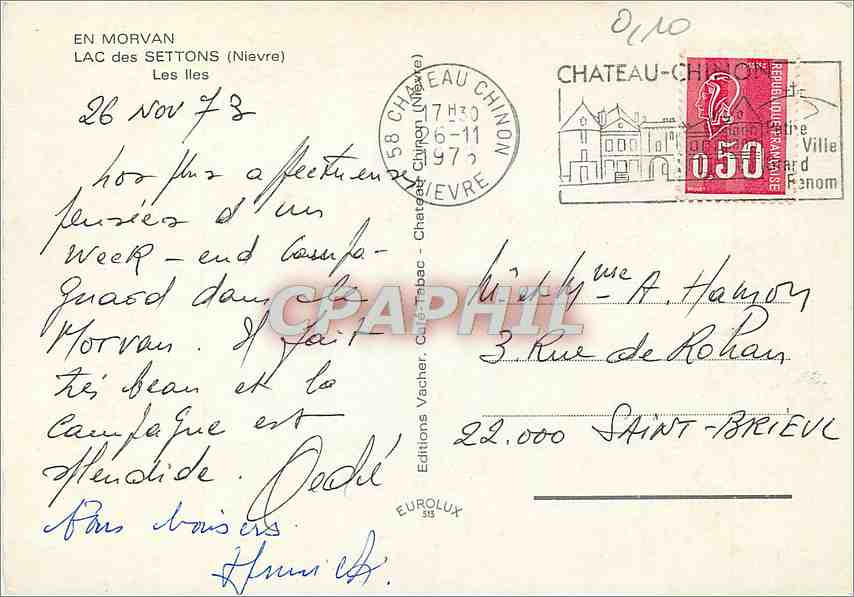 EN MORVAN
LAC des SETTONS (Nievre)
Les Iles
26 NOV 73
Les plus affectueuses
pensées d'un
Week-end Campa-
gnard dans le
Morvan. Il fait
très beau et la
Campagne est
splendide.
Bons baisers
Editions Vacher, Café-Tabac - Chateau Chinon (Nièvre)
EUROLUX
515
0,10
58 CHATEAU CHINON
17H30
26-11
NIEVRE
CHATEAU-CHINON
Petite
Ville
Grand
Renom
REPUBLIQUE FRANÇAISE
0,50
CPAPHIL
Mr et Mme A. Hamon
3 Rue de Rohan
22.000 SAINT-BRIEUC